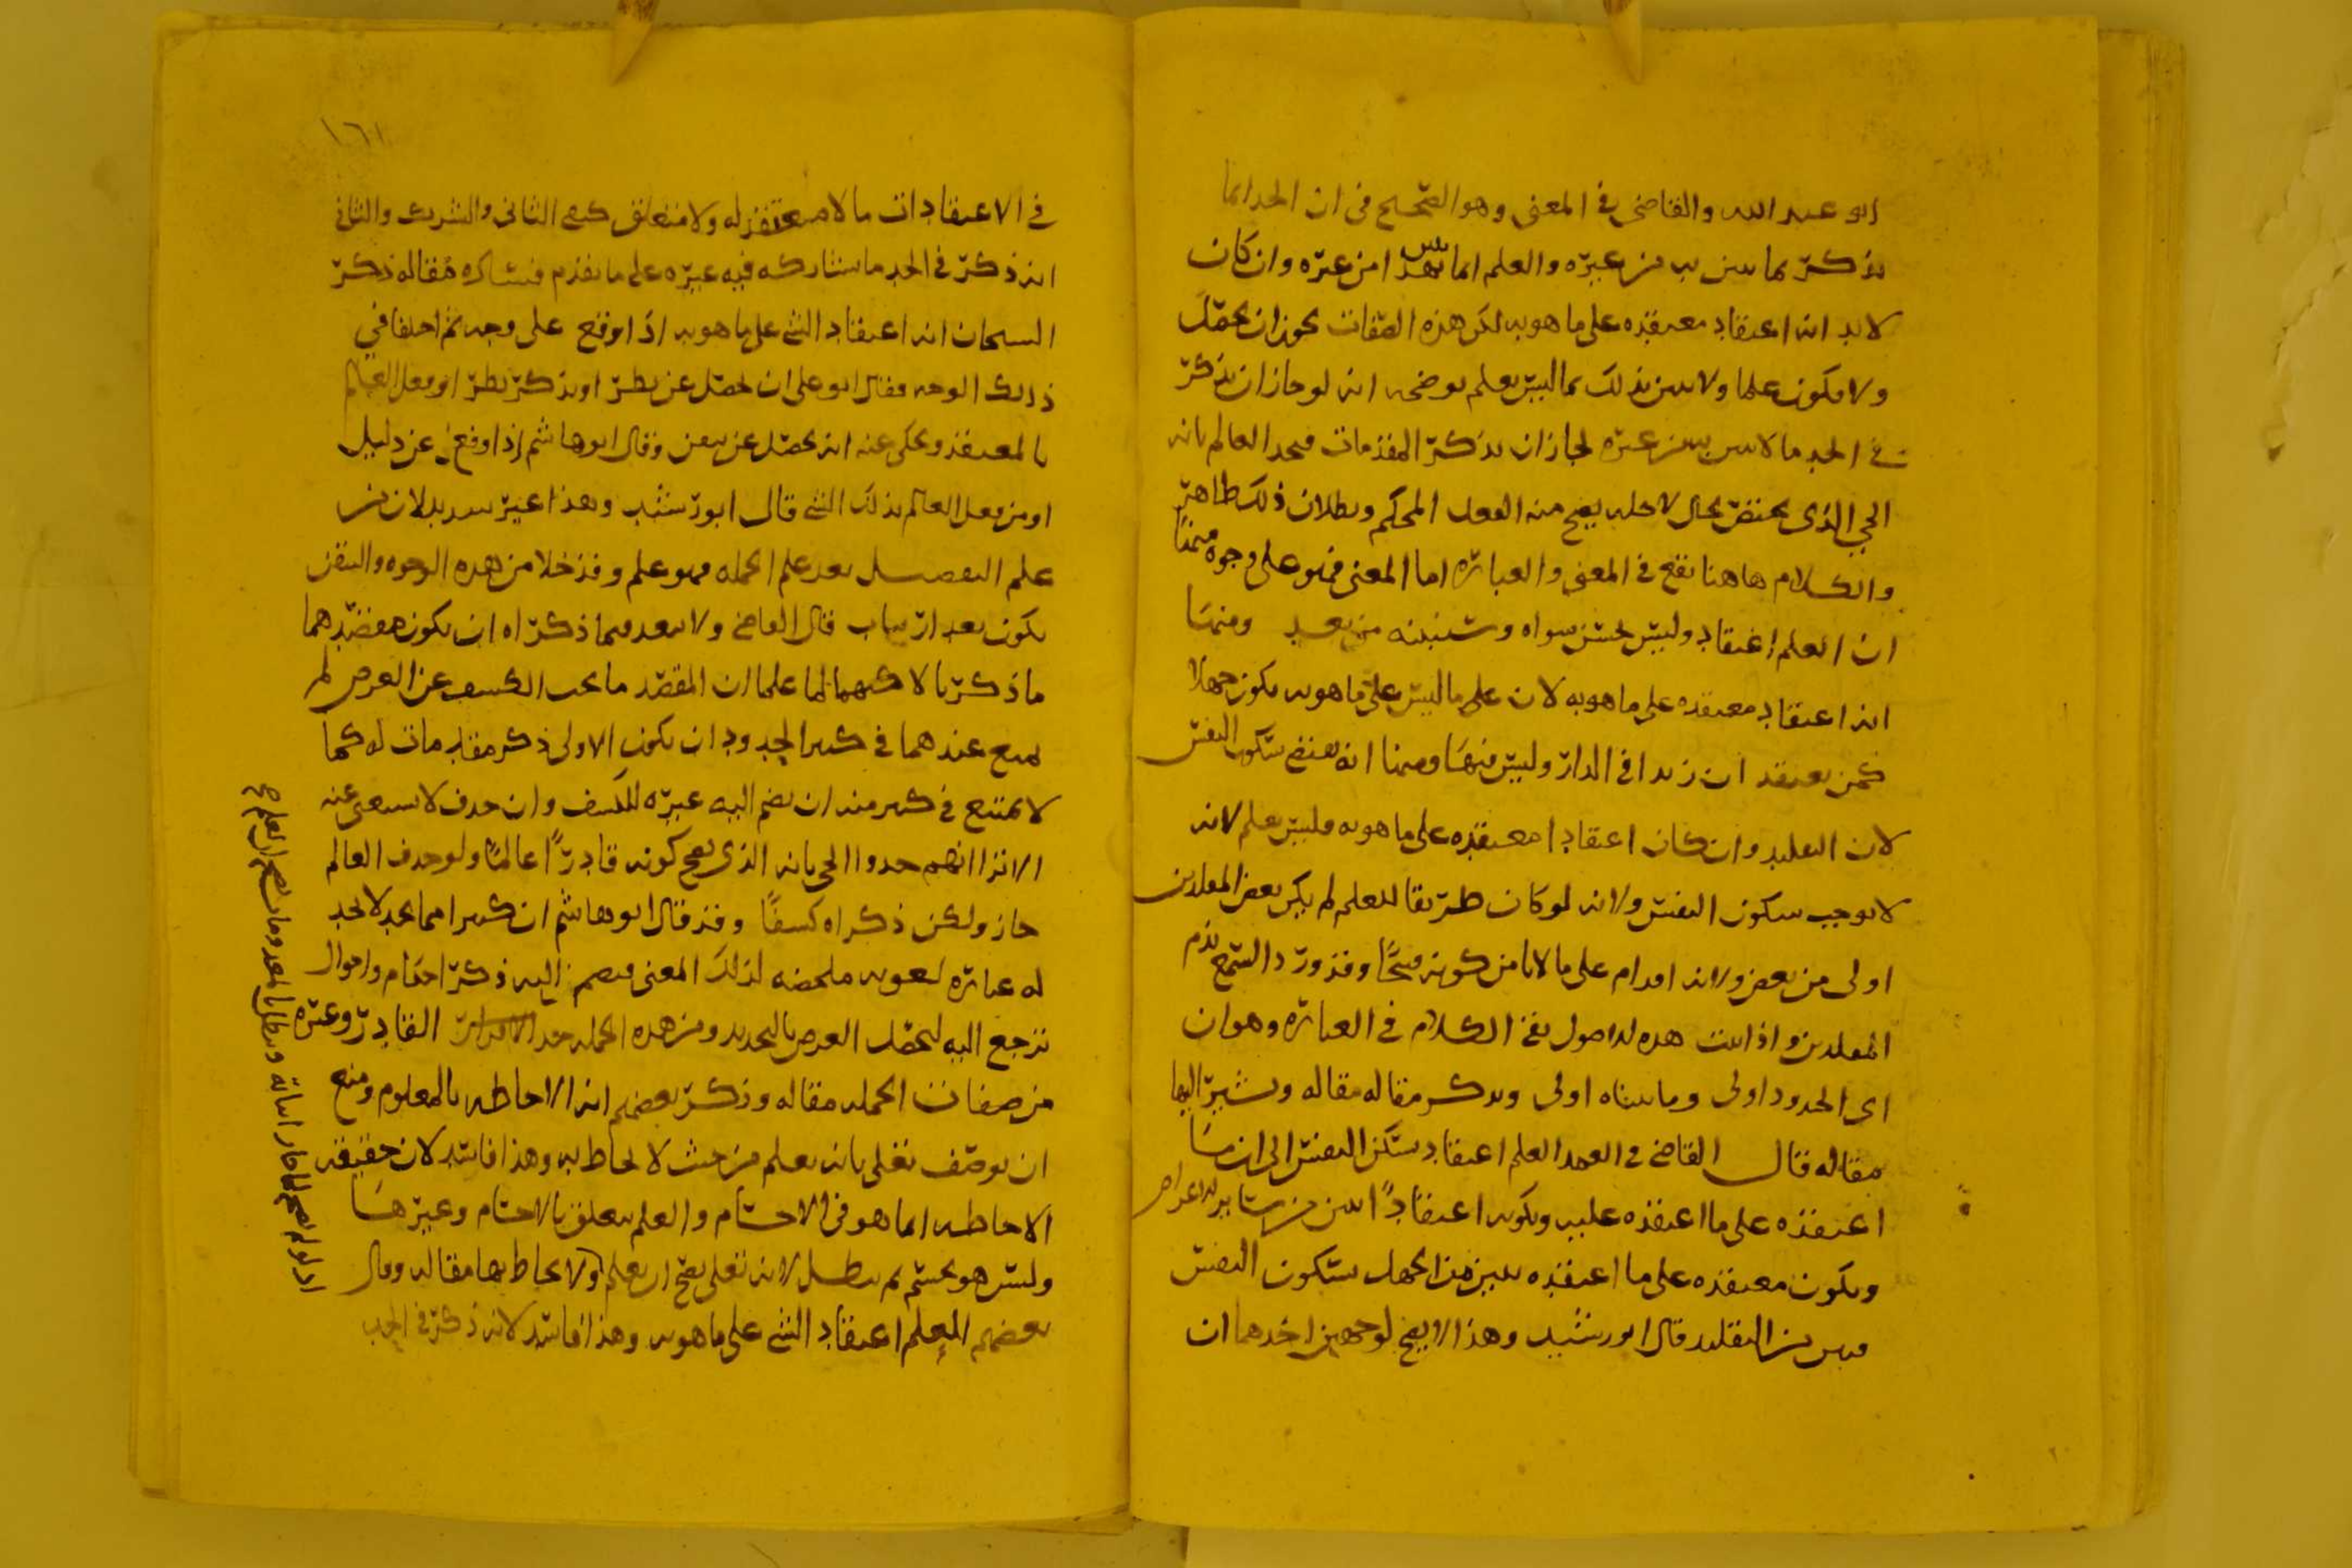 ابو عبد الله والقاضى في المغنى وهو الصحيح فى ان الحد انما
يذكر بما يبين به من غيره والعلم انما يبين بهذا من غيره وان كان
لا بد انه اعتقاد معتقده على ما هو به لكن هذه الصفات يجوز ان يحصل
ولا يكون علما ولا يبين بذلك مما ليس بعلم يوضحه انه لو جاز ان يذكر
في الحد ما لا يبين به من غيره لجاز ان يذكر المقدمات فيحد العالم بانه
الحي الذى يختص بحال لاجله يصح منه الفعل المحكم وبطلان ذلك ظاهر
والكلام هاهنا يقع في المعنى والعبارة اما المعنى فهو على وجوه منها
ان العلم اعتقاد وليس بجنس سواه وسنبينه من بعد ومنها
انه اعتقاد معتقده على ما هو به لان على ما ليس على ما هو به يكون جهلا
كمن يعتقد ان زيدا في الدار وليس فيها ومنها انه يقتضي سكون النفس
لان التقليد وان كان اعتقادا معتقده على ما هو به فليس بعلم لانه
لا يوجب سكون النفس ولانه لو كان طريقا للعلم لم يكن بعض المقلدين
اولى من بعض ولانه اقدام على ما لا يامن كونه قبيحا وقد ورد السمع بذم
المقلدين واذا ثبت هذه الاصول بقي الكلام في العبارة وهو ان
اى الحدود اولى وما بيناه اولى ويذكر مقاله مقاله ونشير اليها
مقاله قال القاضي في العمد العلم اعتقاد يسكن النفس الى ان ما
اعتقده على ما اعتقده عليه وبكونه اعتقادا يبين من سائر الاعراض
وبكون معتقده على ما اعتقده يبين من الجهل وبسكون النفس
يبين من التقليد قال ابو رشيد وهذا لا يصح لوجهين احدهما ان
١٦١
في الاعتقادات ما لا معتقد له ولا متعلق كنفي الثاني والشريك والثاني
انه ذكر في الحد ما يشاركه فيه غيره على ما تقدم فبيناه مقاله ذكر
الشيخان انه اعتقاد الشي على ما هو به اذا وقع على وجه ثم اختلفا في
ذلك الوجه فقال ابو على ان يحصل عن نظر او تذكر نظر او فعل العالم
بالمعتقد وحكى عنه انه يحصل عن يقين وقال ابو هاشم اذا وقع عن دليل
او من فعل العالم بذلك الشي قال ابو رشيد وهذا غير سديد لان من
علم التفصيل بعد علم الجمله فهو علم وقد خلا من هذه الوجوه واليقين
يكون بعد ارتياب قال القاضي ولا يبعد فيما ذكراه ان يكون مقصدهما
ما ذكرنا لا كهما لما علما ان المقصد ما يجب الكشف عن الغرض لم
يمنع عندهما في كثير الحدود ان يكون الاولى ذكر مقدمات له كما
لا يمتنع في كثير منه ان يضم اليه غيره للكشف وان حذف لا يستغنى عنه
الا ترا انهم حدوا الحى بانه الذى يصح كونه قادرا عالما ولو حذف العالم
جاز ولكن ذكراه كشفا وقد قال ابو هاشم ان كثيرا مما يحد لا يجد
له عبارة لغويه ملخصه لذلك المعنى فيضم اليه ذكر احكام واحوال
ترجع اليه ليحصل الغرض بالتحديد ومن هذه الجمله حد القادر وغيره
من صفات الجمله مقاله وذكر بعضهم انه الاحاطه بالمعلوم ومنع
ان يوصف تعلى بانه يعلم من حيث لا يحاط به وهذا فاسد لان حقيقه
الاحاطه انما هو فى الاجسام والعلم يتعلق بالاجسام وغيرها
وليس هو بجسم ثم يبطل لانه تعلى يصح ان يعلم ولا يحاط بها مقاله وقال
بعضهم العلم اعتقاد الشي على ما هو به وهذا فاسد لانه ذكر في الحد